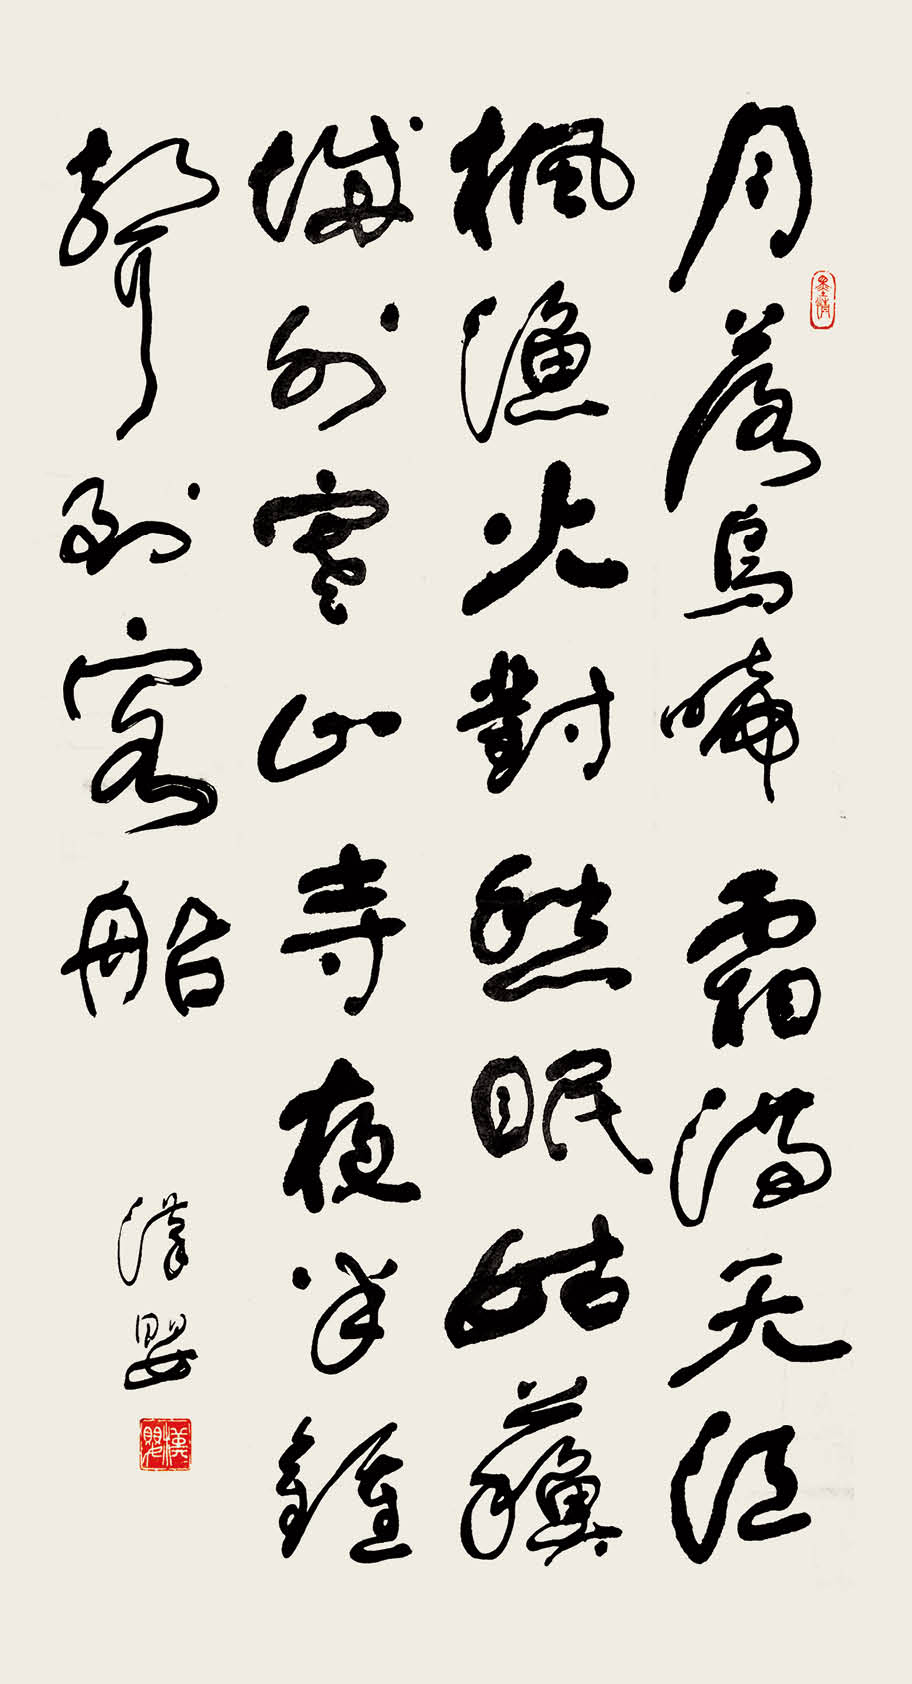 月落烏啼霜滿天江
楓漁火對愁眠姑蘇
城外寒山寺夜半鐘
聲到客船
漢嬰
墨情
漢嬰